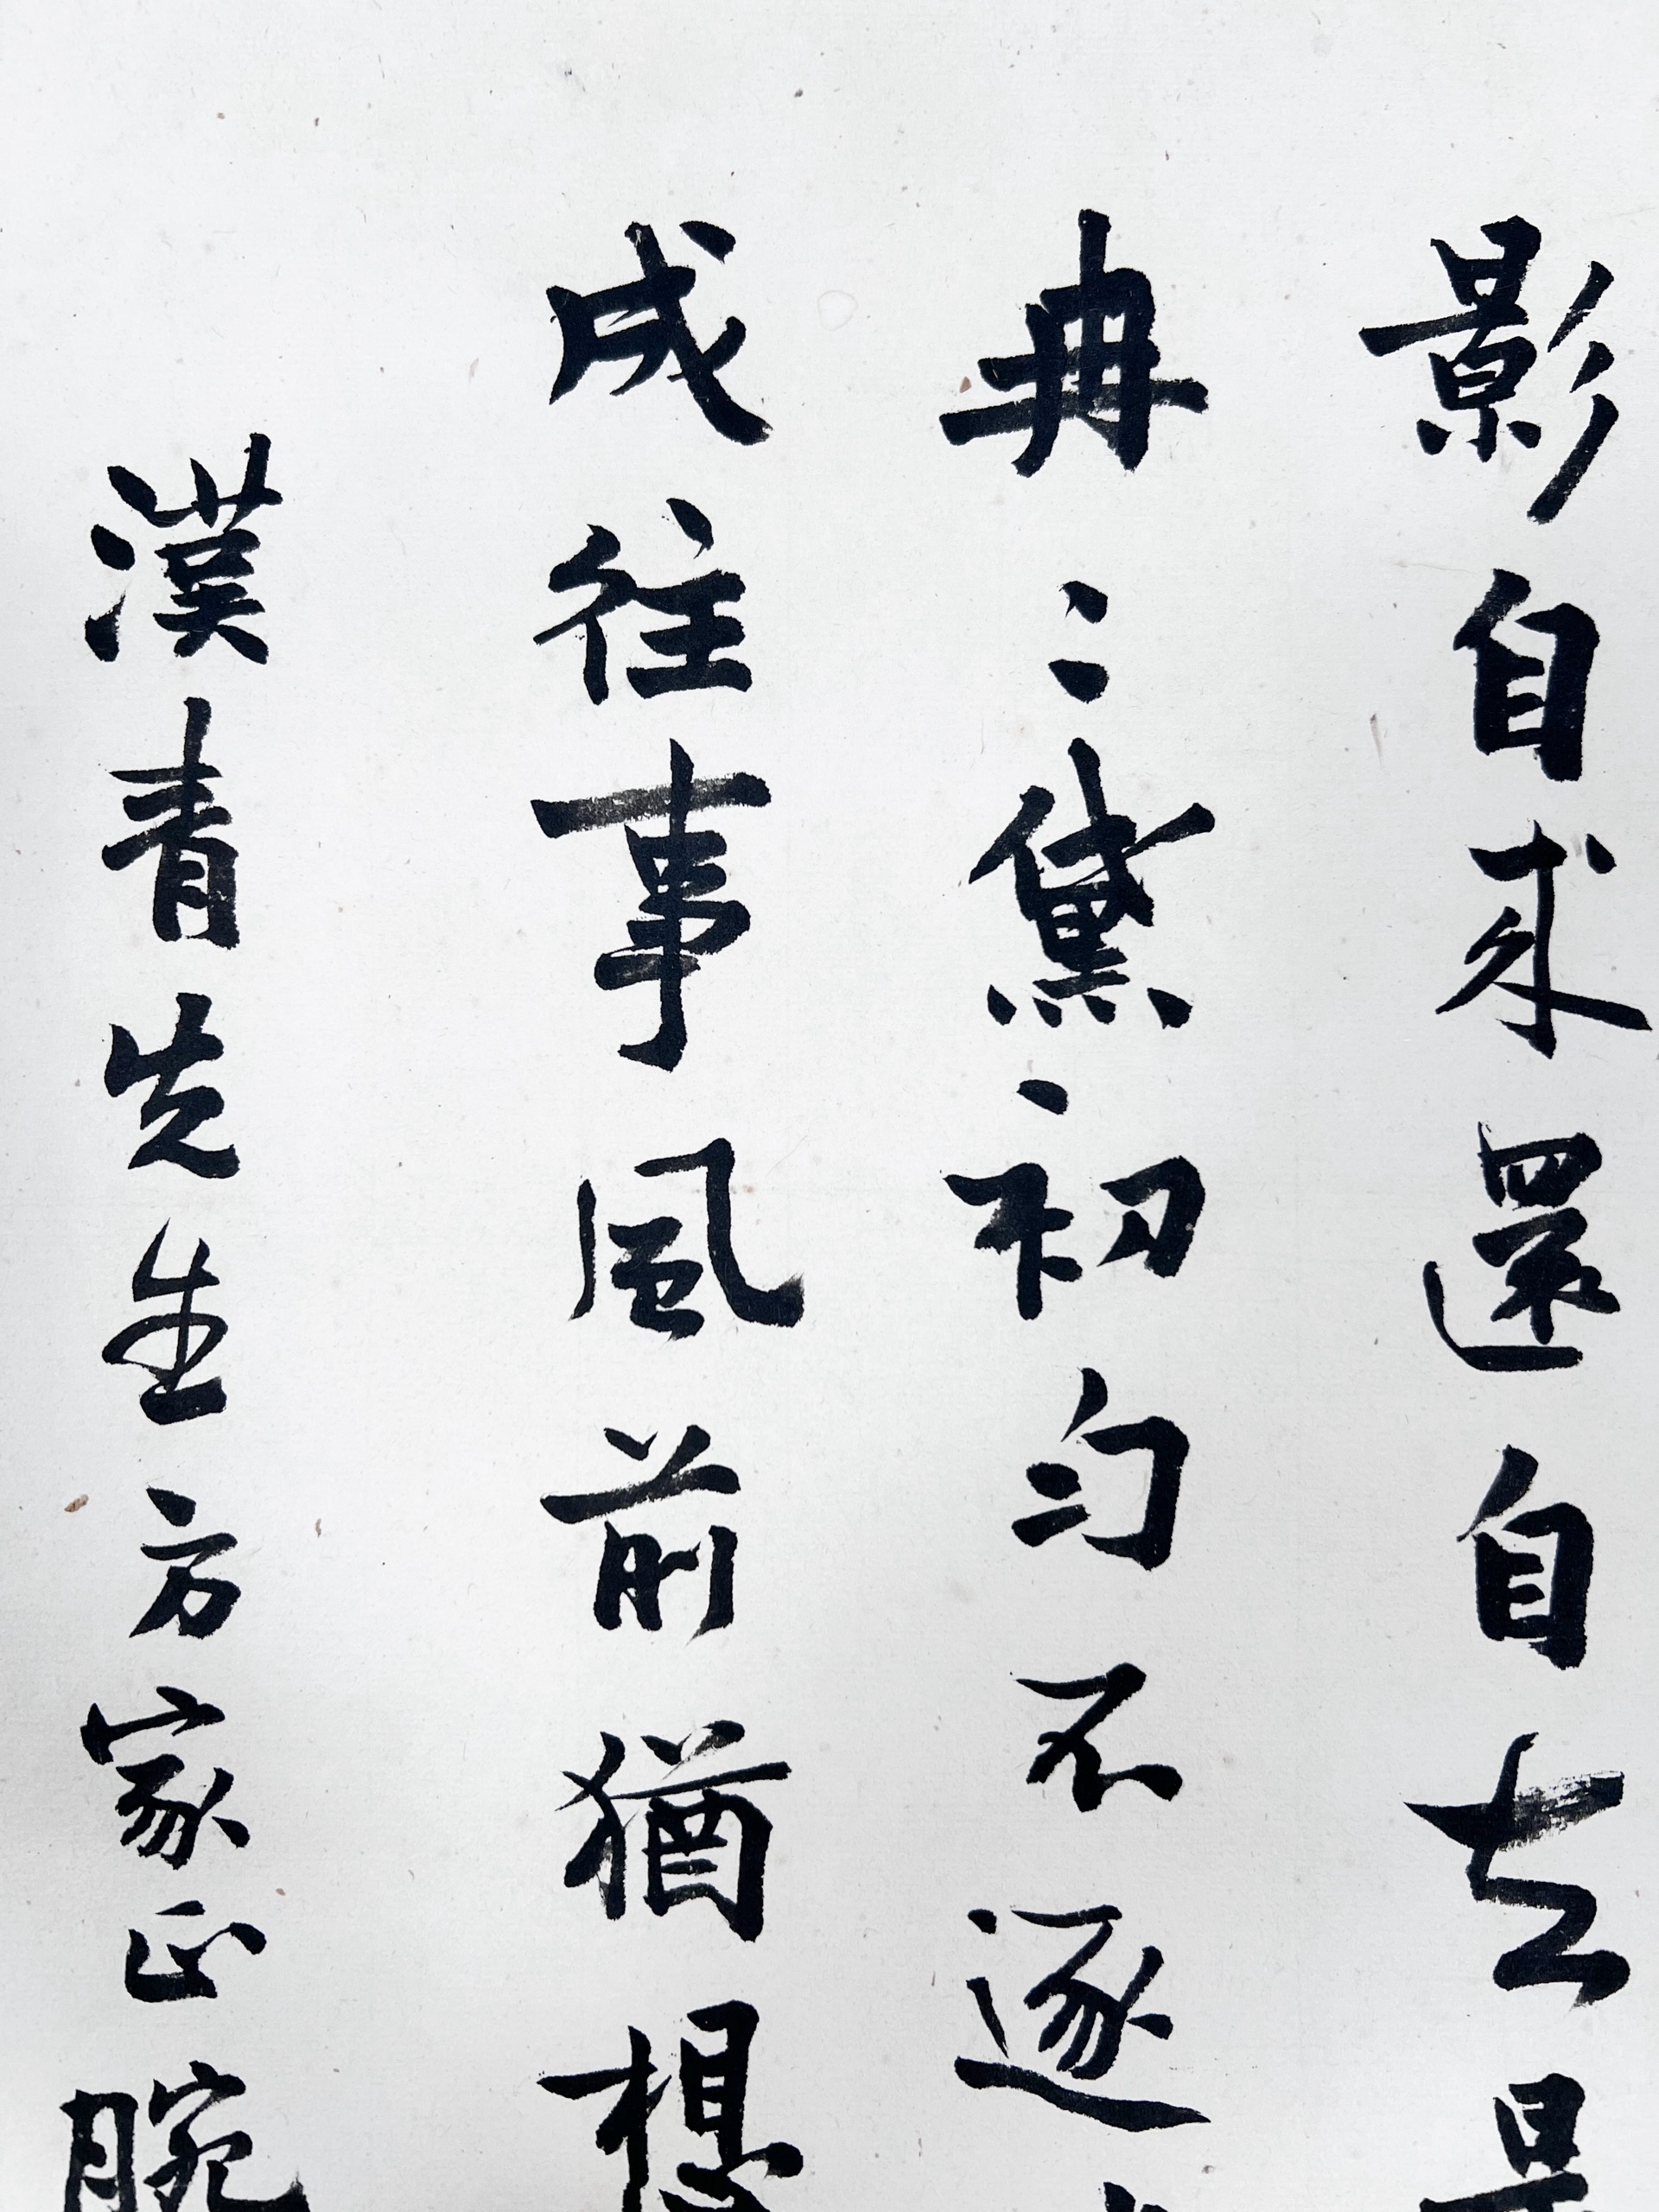 影自来還自去最
冉〻黛初匀不逐
成往事風前猶想
漢青先生方家正腕